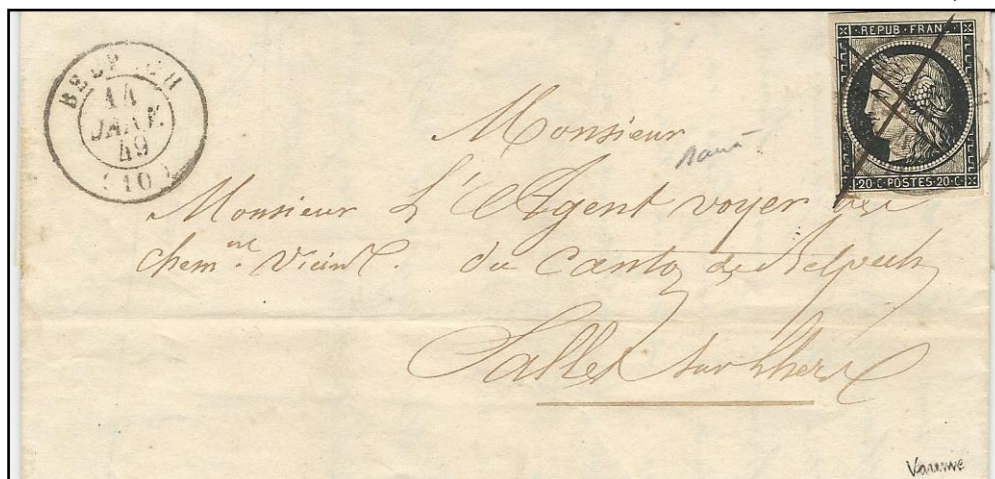 BELPECH
14
JANV.
49
(10)
REPUB. FRANC.
20.C.POSTES.20.C.
Monsieur
Monsieur L'Agent voyer des
chem.ns Vicin.x du Canton de Belpech
Salles sur Lhers
Varenne